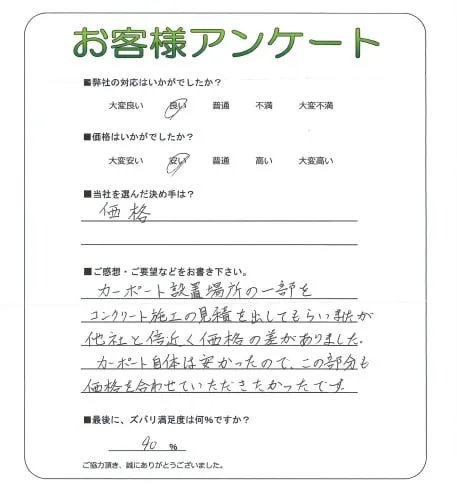 お客様アンケート
■弊社の対応はいかがでしたか？
大変良い 良い 普通 不満 大変不満
■価格はいかがでしたか？
大変安い 安い 普通 高い 大変高い
■当社を選んだ決め手は？
価格
■ご感想・ご要望などをお書き下さい。
カーポート設置場所の一部を
コンクリート施工の見積を出してもらいましたが
他社と倍近く価格の差がありました。
カーポート自体は安かったので、この部分も
価格を合わせていただきたかったです。
■最後に、ズバリ満足度は何%ですか？
90 %
ご協力頂き、誠にありがとうございました。